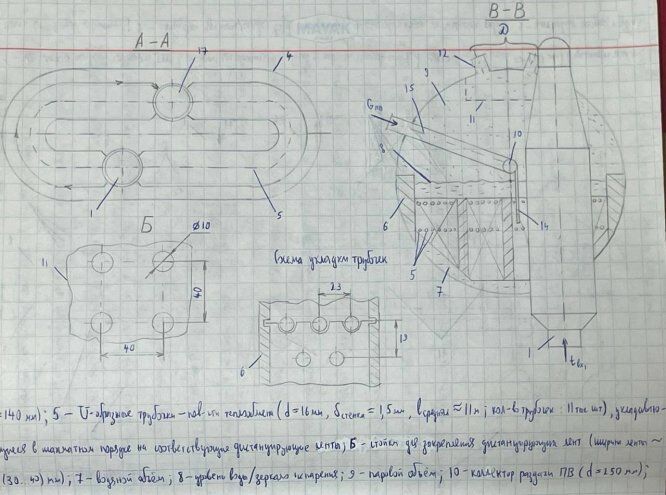 MAVAK
A-A
17
4
1
5
B-B
Д
12
9
15
Gпв
11
8
10
6
5
7
14
1
tвх1
Б
ø10
11
40
40
Схема укладки трубчек
23
19
6
=140 мм); 5 - U-образные трубочки - пов-сти теплообмена (d=16мм, δстенки = 1,5мм, lсредняя ≈ 11м; кол-во трубочек 11тыс шт), укладываю-
щиеся в шахматном порядке на соответствующие дистанцирующие ленты; 6 - стойки для закрепления дистанцирующих лент (ширина ленты ~
(30..40) мм); 7 - водяной объём; 8 - уровень воды/зеркало испарения; 9 - паровой объём; 10 - коллектор раздачи ПВ (d=250мм);